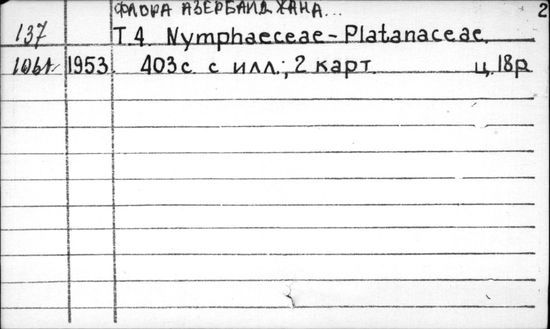 ФЛОРА АЗЕРБАЙДЖАНА... 2
137 Т.4. Nymphaeceae-Platanaceae.
1953. 403с. с илл.; 2 карт. ц. 18р